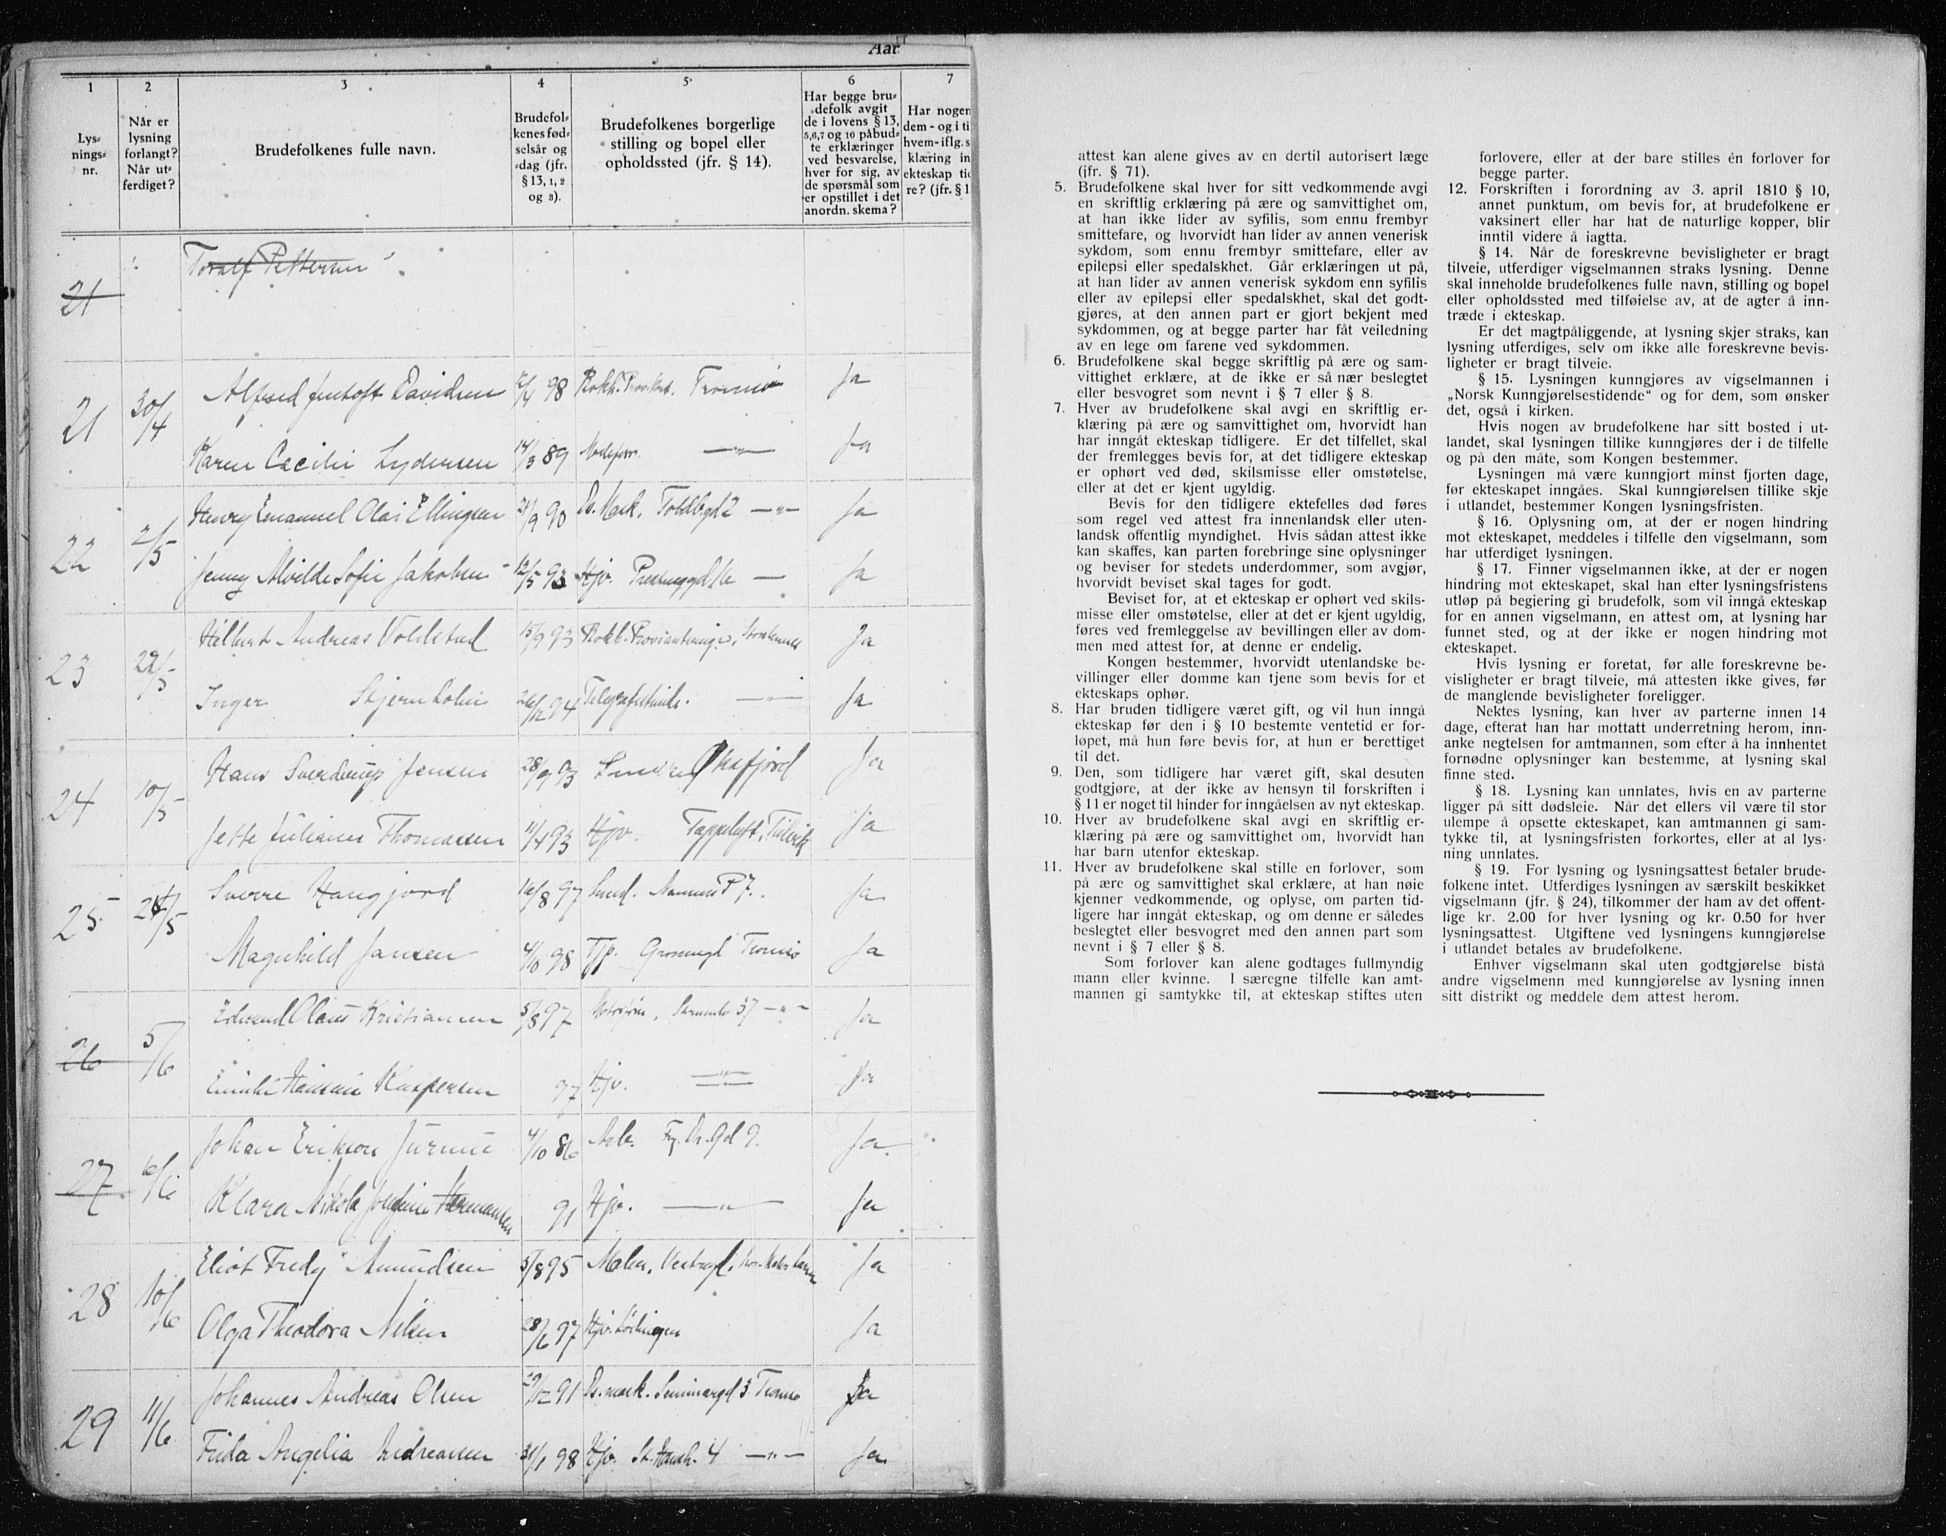 Aar
1
2
3
4
5
6
7
Lys-
nings-
nr.
Når er
lysning
forlangt?
Når ut-
ferdiget?
Brudefolkenes fulle navn.
Brudefol-
kenes fød-
selsår og
-dag (jfr.
§ 13, 1, 2
og 3).
Brudefolkenes borgerlige
stilling og bopel eller
opholdssted (jfr. § 14).
Har begge bru-
defolk avgit
de i lovens § 13,
5, 6, 7 og 10 påbud-
te erklæringer
ved besvarelse,
hver for sig, av
de spørsmål som
er opstillet i det
anordn. skema?
Har nogen
dem - og i ti
hvem - iflg. s
klæring in
ekteskap tid
re? (jfr. § 1
21 Toralf Pettersen
21 30/4 Alfred Jentoft Davidsen 98 Tromsø Ja
Karen Cecilie Lydersen 14/3 89 Ja
22 2/5 Henry Emanuel Olai Ellingsen 21/9 90 Ds. Mask. Toldbgd 2 Ja
Jenny Alvilde Sofie Jakobsen 12/5 93 Hjv. Ja
23 22/5 Andreas Voldstad 15/9 93 Ja
Inger Stjernholm 26/12 94 Ja
24 10/5 Hans Sverdrup Jensen 28/9 93 Ja
Jette Juliane Thomassen 11/4 93 Hjv. Ja
25 Sverre Haugfjord 16/8 97 Ja
Magnhild Jansen 4/10 98 Tjp. Grønnegd Tromsø Ja
26 5/6 Edvard Olaus Kristiansen 5/8 97 Ja
Kaspersen 97 Hjv. Ja
27 6/6 Johan Erikson 4/10 86 Arb. Ja
Klara Nikola Josefine Hermansen 91 Hjv. Ja
28 10/6 Eliot Fredy Amundsen 5/8 95 Maler, Ja
Olga Theodora Nilsen 28/6 97 Hjv. Lødingen Ja
29 11/6 Johannes Andreas Olsen 29/12 91 Ds. mask. Seminargd 3 Tromsø Ja
Frida Angelia Andreassen 31/1 98 Hjv. St. Hansh. 4 Ja
attest kan alene gives av en dertil autorisert læge
(jfr. § 71).
5. Brudefolkene skal hver for sitt vedkommende avgi
en skriftlig erklæring på ære og samvittighet om,
at han ikke lider av syfilis, som ennu frembyr
smittefare, og hvorvidt han lider av annen venerisk
sykdom, som ennu frembyr smittefare, eller av
epilepsi eller spedalskhet. Går erklæringen ut på,
at han lider av annen venerisk sykdom enn syfilis
eller av epilepsi eller spedalskhet, skal det godt-
gjøres, at den annen part er gjort bekjent med
sykdommen, og at begge parter har fåt veiledning
av en lege om farene ved sykdommen.
6. Brudefolkene skal begge skriftlig på ære og sam-
vittighet erklære, at de ikke er så nær beslegtet
eller besvogret som nevnt i § 7 eller § 8.
7. Hver av brudefolkene skal avgi en skriftlig er-
klæring på ære og samvittighet om, hvorvidt han
har inngåt ekteskap tidligere. Er det tilfellet, skal
der fremlegges bevis for, at det tidligere ekteskap
er ophørt ved død, skilsmisse eller omstøtelse,
eller at det er kjent ugyldig.
Bevis for den tidligere ektefelles død føres
som regel ved attest fra innenlandsk eller uten-
landsk offentlig myndighet. Hvis sådan attest ikke
kan skaffes, kan parten forebringe sine oplysninger
og beviser for stedets underdommer, som avgjør,
hvorvidt beviset skal tages for godt.
Beviset for, at et ekteskap er ophørt ved skils-
misse eller omstøtelse, eller at det er kjent ugyldig,
føres ved fremleggelse av bevillingen eller av dom-
men med attest for, at denne er endelig.
Kongen bestemmer, hvorvidt utenlandske be-
villinger eller domme kan tjene som bevis for et
ekteskaps ophør.
8. Har bruden tidligere været gift, og vil hun inngå
ekteskap før den i § 10 bestemte ventetid er for-
løpet, må hun føre bevis for, at hun er berettiget
til det.
9. Den, som tidligere har været gift, skal desuten
godtgjøre, at der ikke av hensyn til forskriften i
§ 11 er noget til hinder for inngåelsen av nyt ekteskap.
10. Hver av brudefolkene skal avgi en skriftlig er-
klæring på ære og samvittighet om, hvorvidt han
har barn utenfor ekteskap.
11. Hver av brudefolkene skal stille en forlover, som
på ære og samvittighet skal erklære, at han nøie
kjenner vedkommende, og oplyse, om parten tid-
ligere har inngåt ekteskap, og om denne er således
beslegtet eller besvogret med den annen part som
nevnt i § 7 eller § 8.
Som forlover kan alene godtages fullmyndig
mann eller kvinne. I særegne tilfelle kan amt-
mannen gi samtykke til, at ekteskap stiftes uten
forlovere, eller at der bare stilles én forlover for
begge parter.
12. Forskriften i forordning av 3. april 1810 § 10,
annet punktum, om bevis for, at brudefolkene er
vaksinert eller har hat de naturlige kopper, blir
inntil videre å iagtta.
§ 14. Når de foreskrevne bevisligheter er bragt
tilveie, utferdiger vigselmannen straks lysning. Denne
skal inneholde brudefolkenes fulle navn, stilling og bopel
eller opholdssted med tilføielse av, at de agter å inn-
træde i ekteskap.
Er det magtpåliggende, at lysning skjer straks, kan
lysning utferdiges, selv om ikke alle foreskrevne bevis-
ligheter er bragt tilveie.
§ 15. Lysningen kunngjøres av vigselmannen i
„Norsk Kunngjørelsestidende“ og for dem, som ønsker
det, også i kirken.
Hvis nogen av brudefolkene har sitt bosted i ut-
landet, skal lysningen tillike kunngjøres der i de tilfelle
og på den måte, som Kongen bestemmer.
Lysningen må være kunngjort minst fjorten dage,
før ekteskapet inngåes. Skal kunngjørelsen tillike skje
i utlandet, bestemmer Kongen lysningsfristen.
§ 16. Oplysning om, at der er nogen hindring
mot ekteskapet, meddeles i tilfelle den vigselmann, som
har utferdiget lysningen.
§ 17. Finner vigselmannen ikke, at der er nogen
hindring mot ekteskapet, skal han efter lysningsfristens
utløp på begjering gi brudefolk, som vil inngå ekteskap
for en annen vigselmann, en attest om, at lysning har
funnet sted, og at der ikke er nogen hindring mot
ekteskapet.
Hvis lysning er foretat, før alle foreskrevne be-
visligheter er bragt tilveie, må attesten ikke gives, før
de manglende bevisligheter foreligger.
Nektes lysning, kan hver av parterne innen 14
dage, efterat han har mottatt underretning herom, inn-
anke negtelsen for amtmannen, som efter å ha innhentet
fornødne oplysninger kan bestemme, at lysning skal
finne sted.
§ 18. Lysning kan unnlates, hvis en av parterne
ligger på sitt dødsleie. Når det ellers vil være til stor
ulempe å opsette ekteskapet, kan amtmannen gi sam-
tykke til, at lysningsfristen forkortes, eller at al lys-
ning unnlates.
§ 19. For lysning og lysningsattest betaler brude-
folkene intet. Utferdiges lysningen av særskilt beskikket
vigselmann (jfr. § 24), tilkommer der ham av det offent-
lige kr. 2.00 for hver lysning og kr. 0.50 for hver
lysningsattest. Utgiftene ved lysningens kunngjørelse
i utlandet betales av brudefolkene.
Enhver vigselmann skal uten godtgjørelse bistå
andre vigselmenn med kunngjørelse av lysning innen
sitt distrikt og meddele dem attest herom.